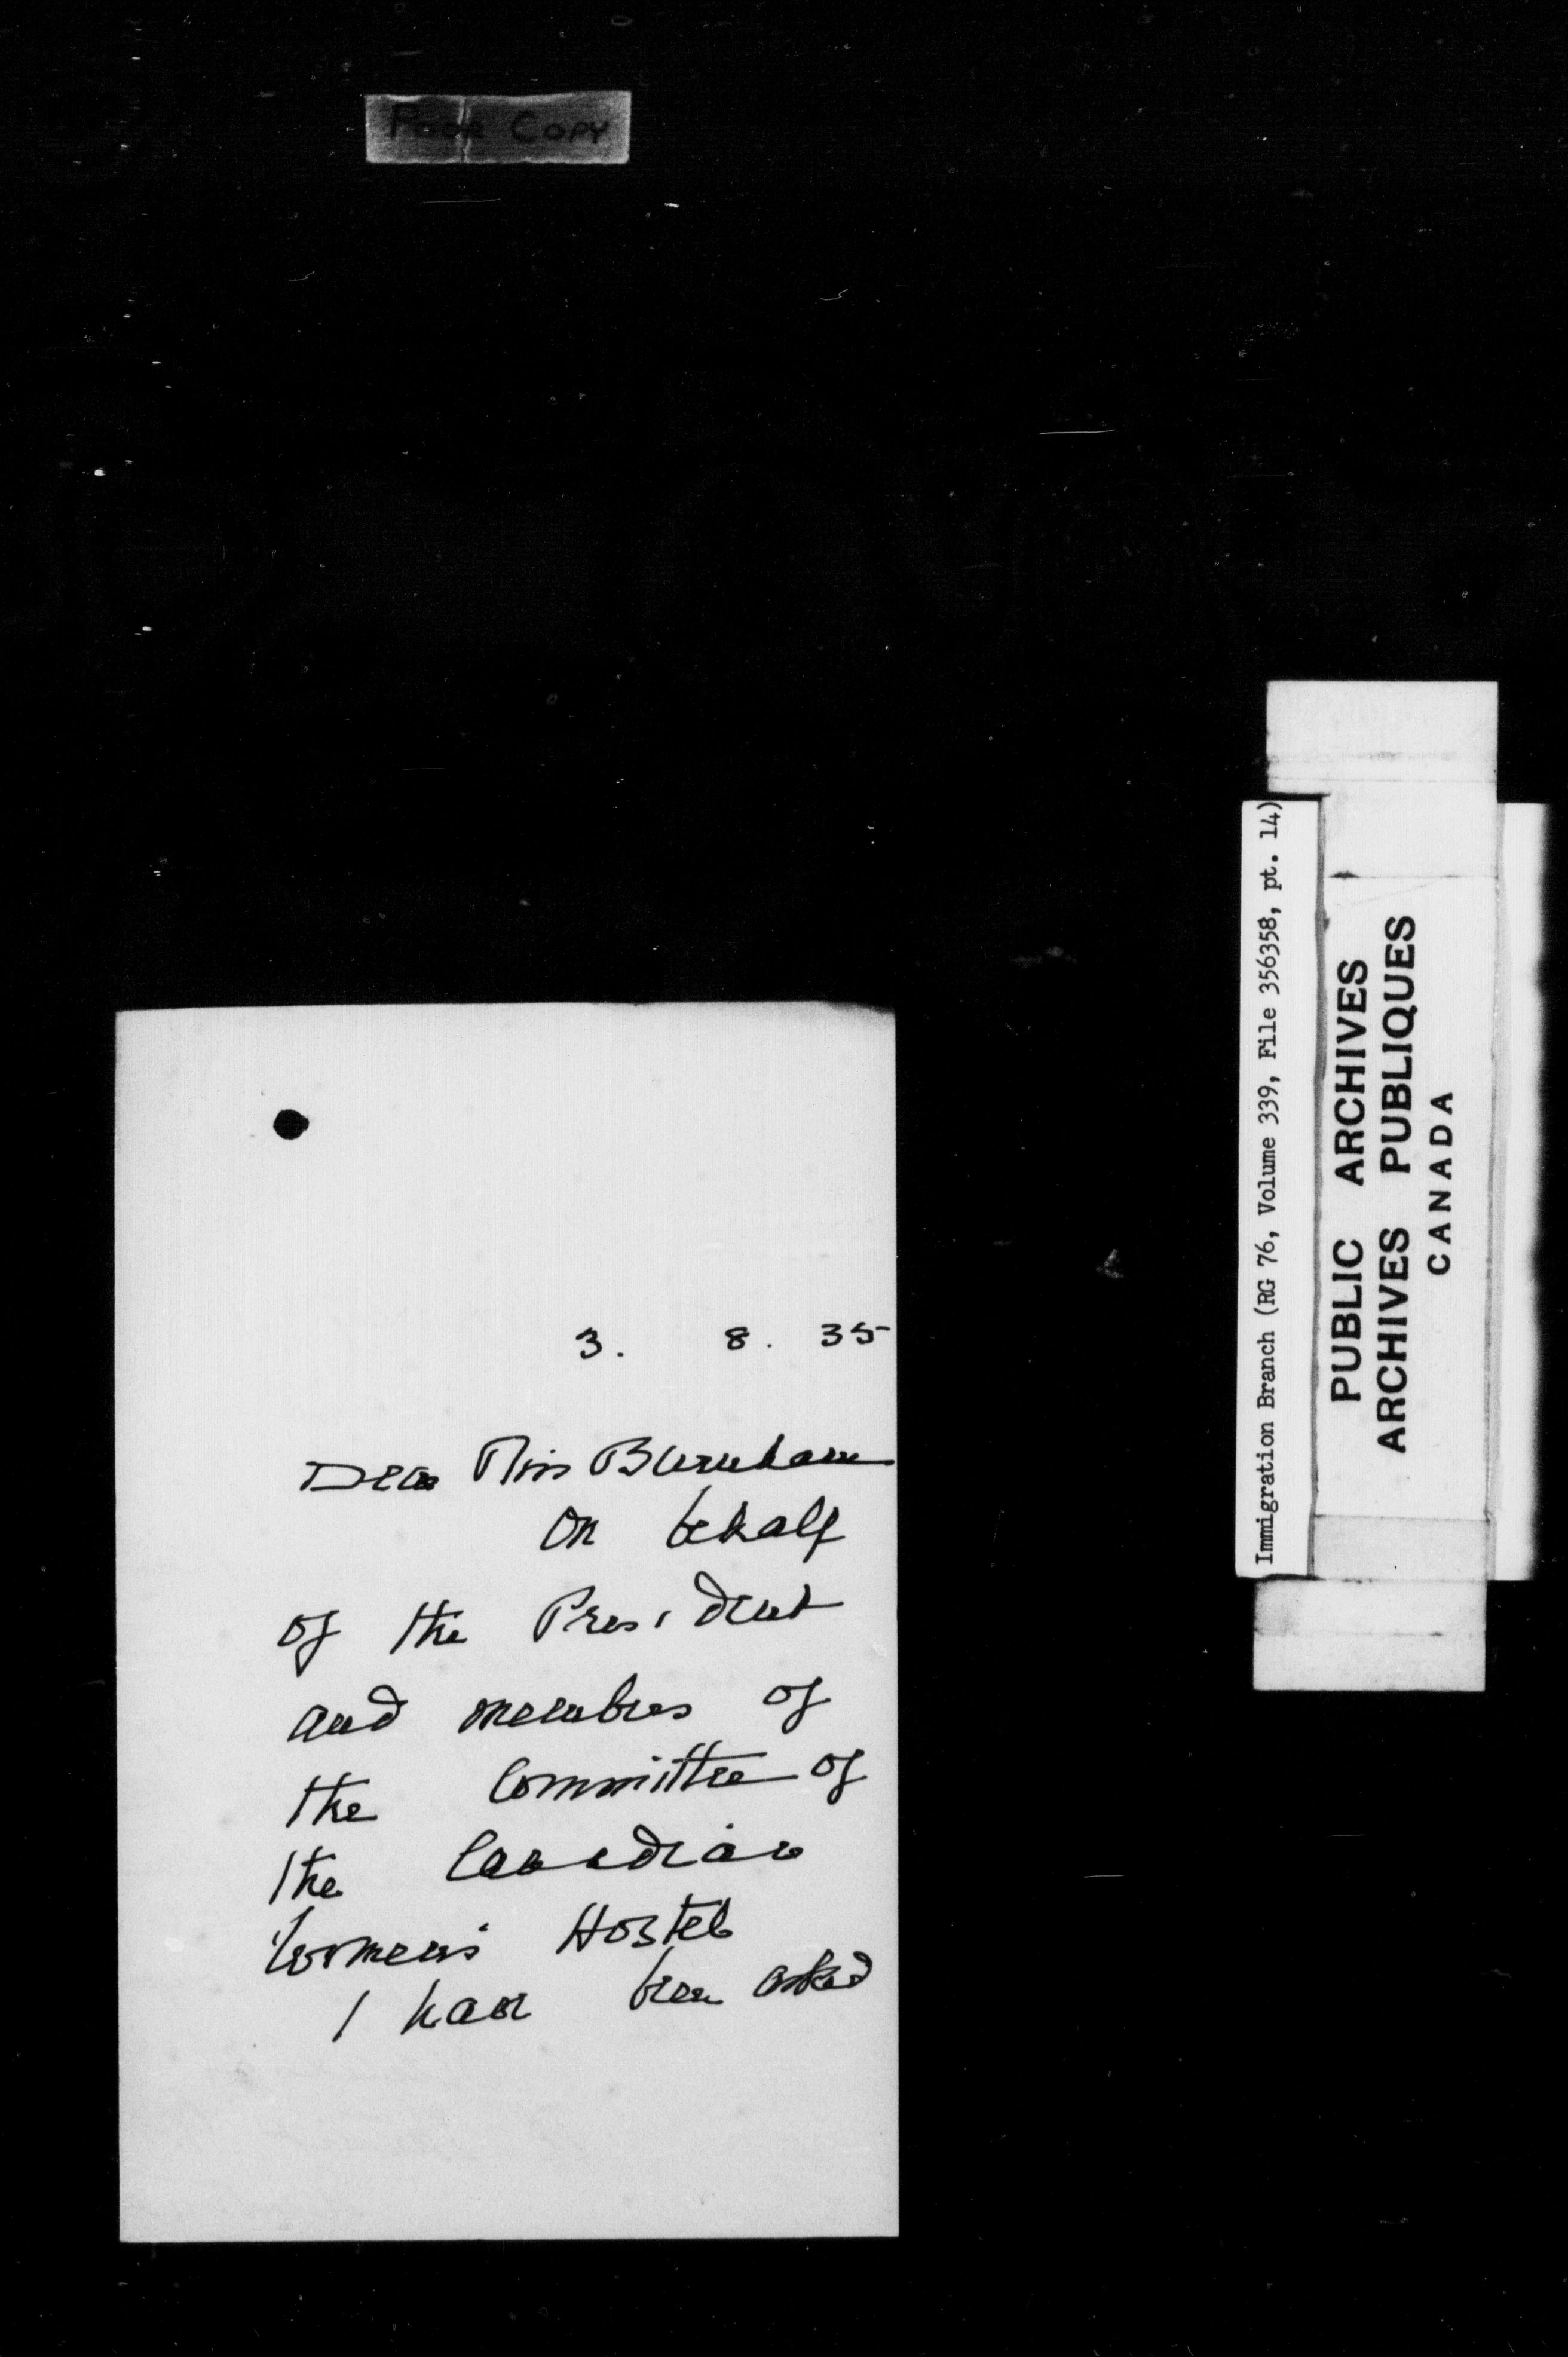 POOR COPY
3. 8. 35
Dear Miss Burnham
On behalf
of the President
and members of
the Committee of
the Canadian
Women's Hostel
I have been asked
Immigration Branch (RG 76, Volume 339, File 356358, pt. 14)
PUBLIC ARCHIVES
ARCHIVES PUBLIQUES
CANADA